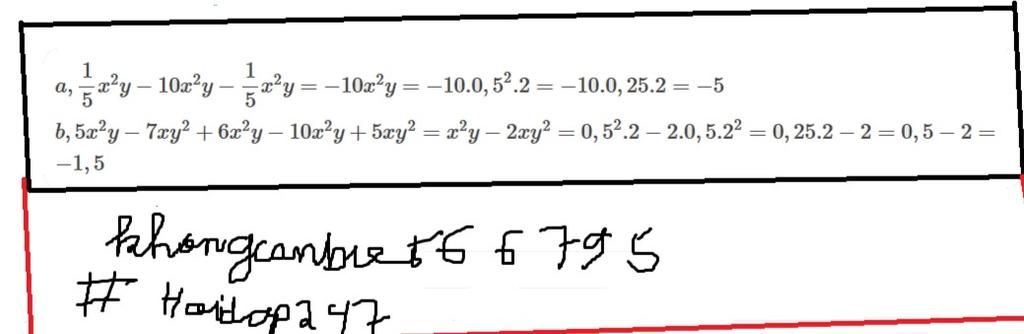 a, 1/5 x²y − 10x²y − 1/5 x²y = −10x²y = −10.0, 5².2 = −10.0, 25.2 = −5
b, 5x²y − 7xy² + 6x²y − 10x²y + 5xy² = x²y − 2xy² = 0, 5².2 − 2.0, 5.2² = 0, 25.2 − 2 = 0, 5 − 2 =
−1, 5
khongcanbiet56 6 795
# Hoidap247